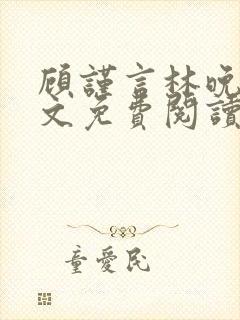 顾謹言林晚
文免費閱讀
童愛民